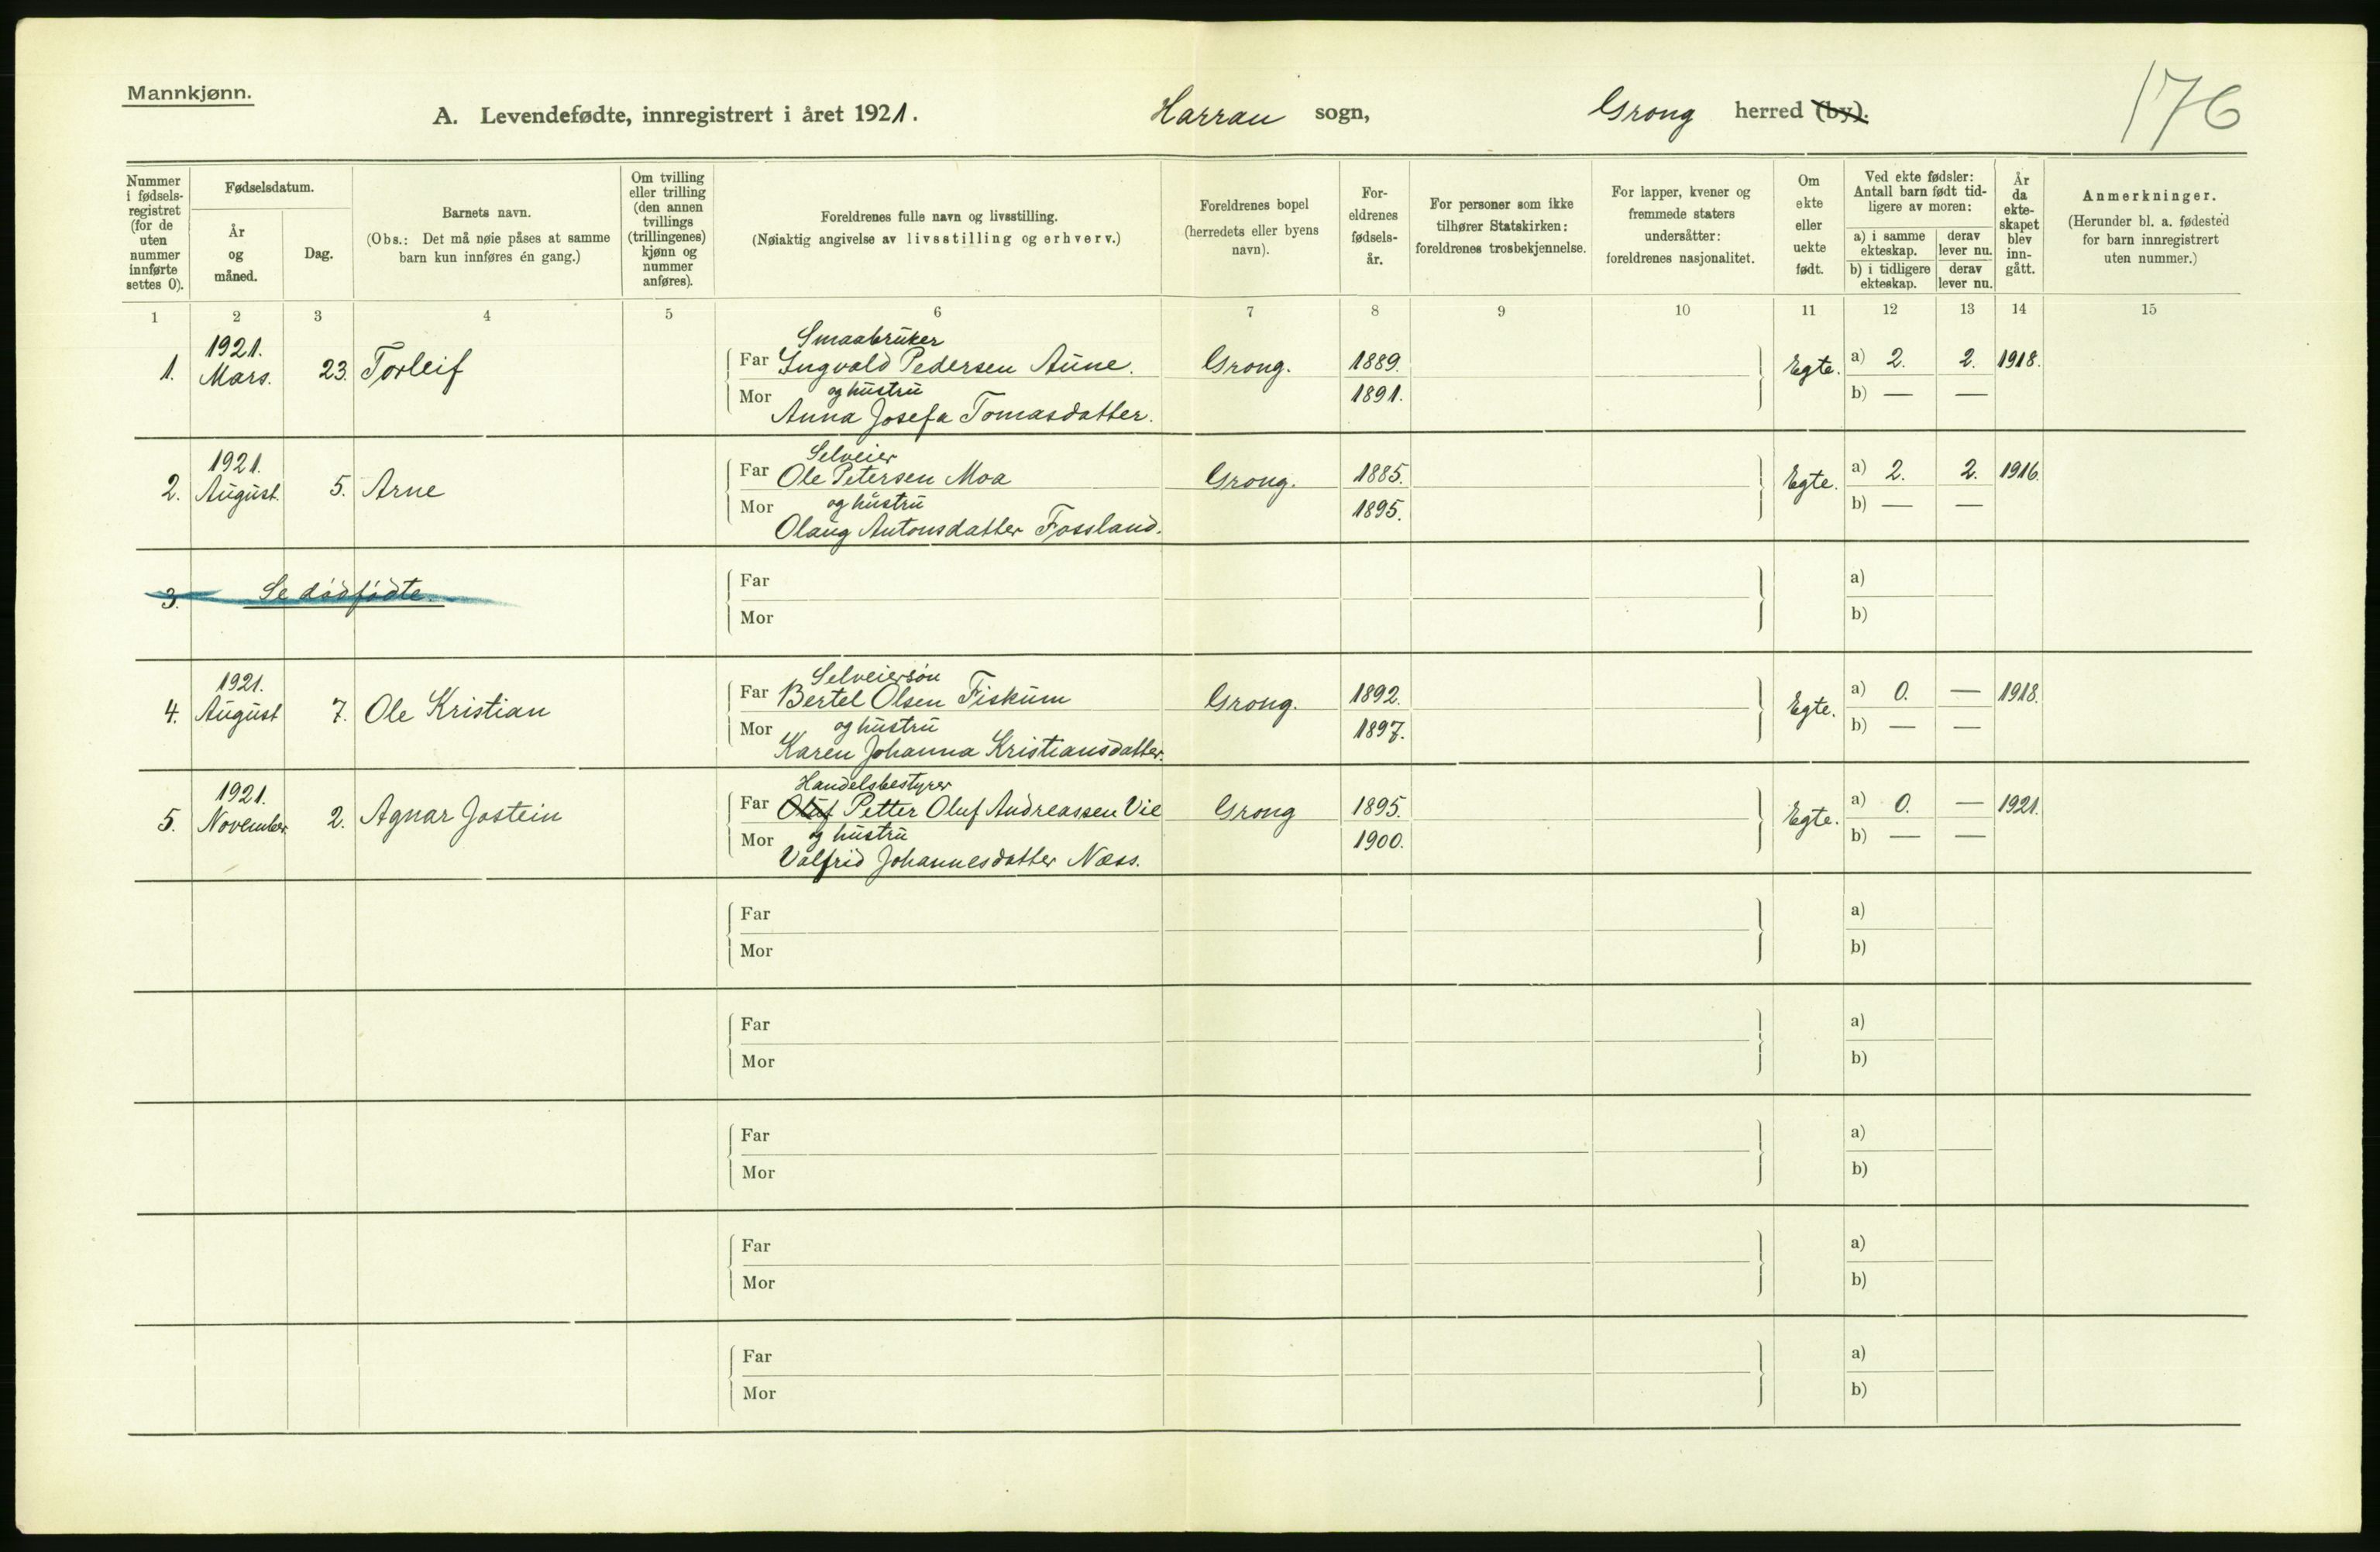 Mannkjønn.
A. Levendefødte, innregistrert i året 1921. Harran sogn, Grong herred (by).
176
Nummer i fødsels-registret (for de uten nummer innførte settes 0).
Fødselsdatum.
År og måned.
Dag.
Barnets navn.
(Obs.: Det må nøie påses at samme barn kun innføres én gang.)
Om tvilling eller trilling (den annen tvillings (trillingenes) kjønn og nummer anføres).
Foreldrenes fulle navn og livsstilling.
(Nøiaktig angivelse av livsstilling og erhverv.)
Foreldrenes bopel (herredets eller byens navn).
For-eldrenes fødsels-år.
For personer som ikke tilhører Statskirken: foreldrenes trosbekjennelse.
For lapper, kvener og fremmede staters undersåtter: foreldrenes nasjonalitet.
Om ekte eller uekte født.
Ved ekte fødsler: Antall barn født tid-ligere av moren:
a) i samme ekteskap.
derav lever nu.
b) i tidligere ekteskap.
derav lever nu.
År da ekte-skapet blev inn-gått.
Anmerkninger.
(Herunder bl. a. fødested for barn innregistrert uten nummer.)
1 2 3 4 5 6 7 8 9 10 11 12 13 14 15
1921. Smaabruker
1. Mars. 23. Torleif Far Ingvald Pedersen Aune. Grong. 1889. Egte. a) 2. 2. 1918.
Mor og hustru 1891. b) — —
Anna Josefa Tomasdatter.
1921. Selveier
2. August. 5. Arne Far Ole Petersen Moa Grong. 1885. Egte. a) 2. 2. 1916.
Mor og hustru 1895. b) — —
Olaug Antonsdatter Fossland.
3. Se dødfødte. Far a)
Mor b)
1921. Selveiersøn
4. August 7. Ole Kristian Far Bertel Olsen Fiskum Grong. 1892. Egte. a) 0. — 1918.
Mor og hustru 1897. b) — —
Karen Johanna Kristiansdatter.
1921. Handelsbestyrer
5. November. 2. Agnar Jostein Far Oluf Petter Oluf Andreassen Vie Grong 1895. Egte. a) 0. — 1921.
Mor og hustru 1900. b) — —
Valfrid Johannesdatter Næss.
Far a)
Mor b)
Far a)
Mor b)
Far a)
Mor b)
Far a)
Mor b)
Far a)
Mor b)